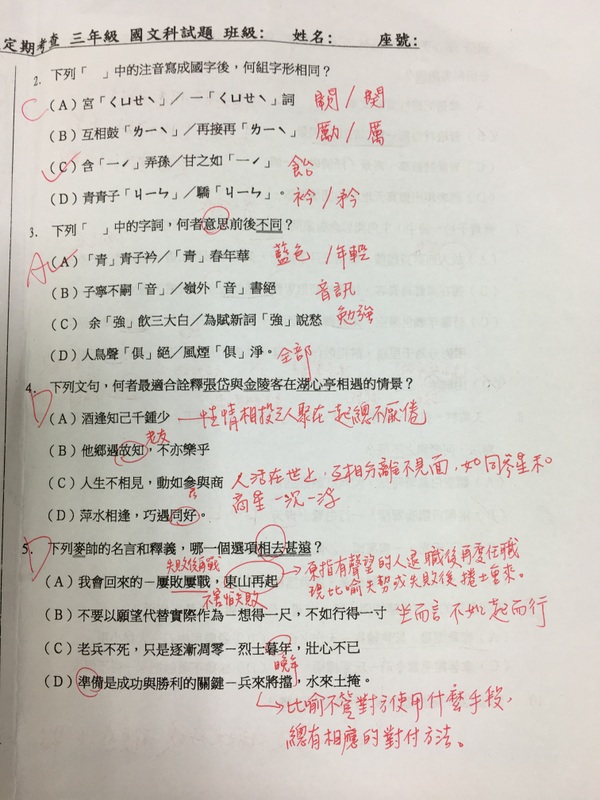 定期考查 三年級 國文科試題 班級： 姓名： 座號：
2. 下列「 」中的注音寫成國字後，何組字形相同？
C（A）宮「ㄑㄩㄝˋ」／一「ㄑㄩㄝˋ」詞 闕／闋
（B）互相鼓「ㄌㄧˋ」／再接再「ㄌㄧˋ」 勵／厲
（C）含「ㄧˊ」弄孫／甘之如「ㄧˊ」 飴
（D）青青子「ㄐㄧㄣ」／驕「ㄐㄧㄣ」。 衿／矜
3. 下列「 」中的字詞，何者意思前後不同？
A（A）「青」青子衿／「青」春年華 藍色／年輕
（B）子寧不嗣「音」／嶺外「音」書絕 音訊
（C） 余「強」飲三大白／為賦新詞「強」說愁 勉強
（D）人鳥聲「俱」絕／風煙「俱」淨。 全部
4. 下列文句，何者最適合詮釋張岱與金陵客在湖心亭相遇的情景？
D（A）酒逢知己千鍾少 性情相投之人聚在一起總不厭倦
老友
（B）他鄉遇故知，不亦樂乎
（C）人生不相見，動如參與商 人活在世上，互相分離不見面，如同參星和
商星一沉一浮
（D）萍水相逢，巧遇同好。
5. 下列麥帥的名言和釋義，哪一個選項相去甚遠？
D 失敗後再戰 原指有聲望的人退職後再度任職
（A）我會回來的－屢敗屢戰，東山再起 現比喻失勢或失敗後捲土重來。
不害怕失敗
（B）不要以願望代替實際作為－想得一尺，不如行得一寸 坐而言不如起而行
（C）老兵不死，只是逐漸凋零－烈士暮年，壯心不已
晚年
（D）準備是成功與勝利的關鍵－兵來將擋，水來土掩。
比喻不管對方使用什麼手段，
總有相應的對付方法。